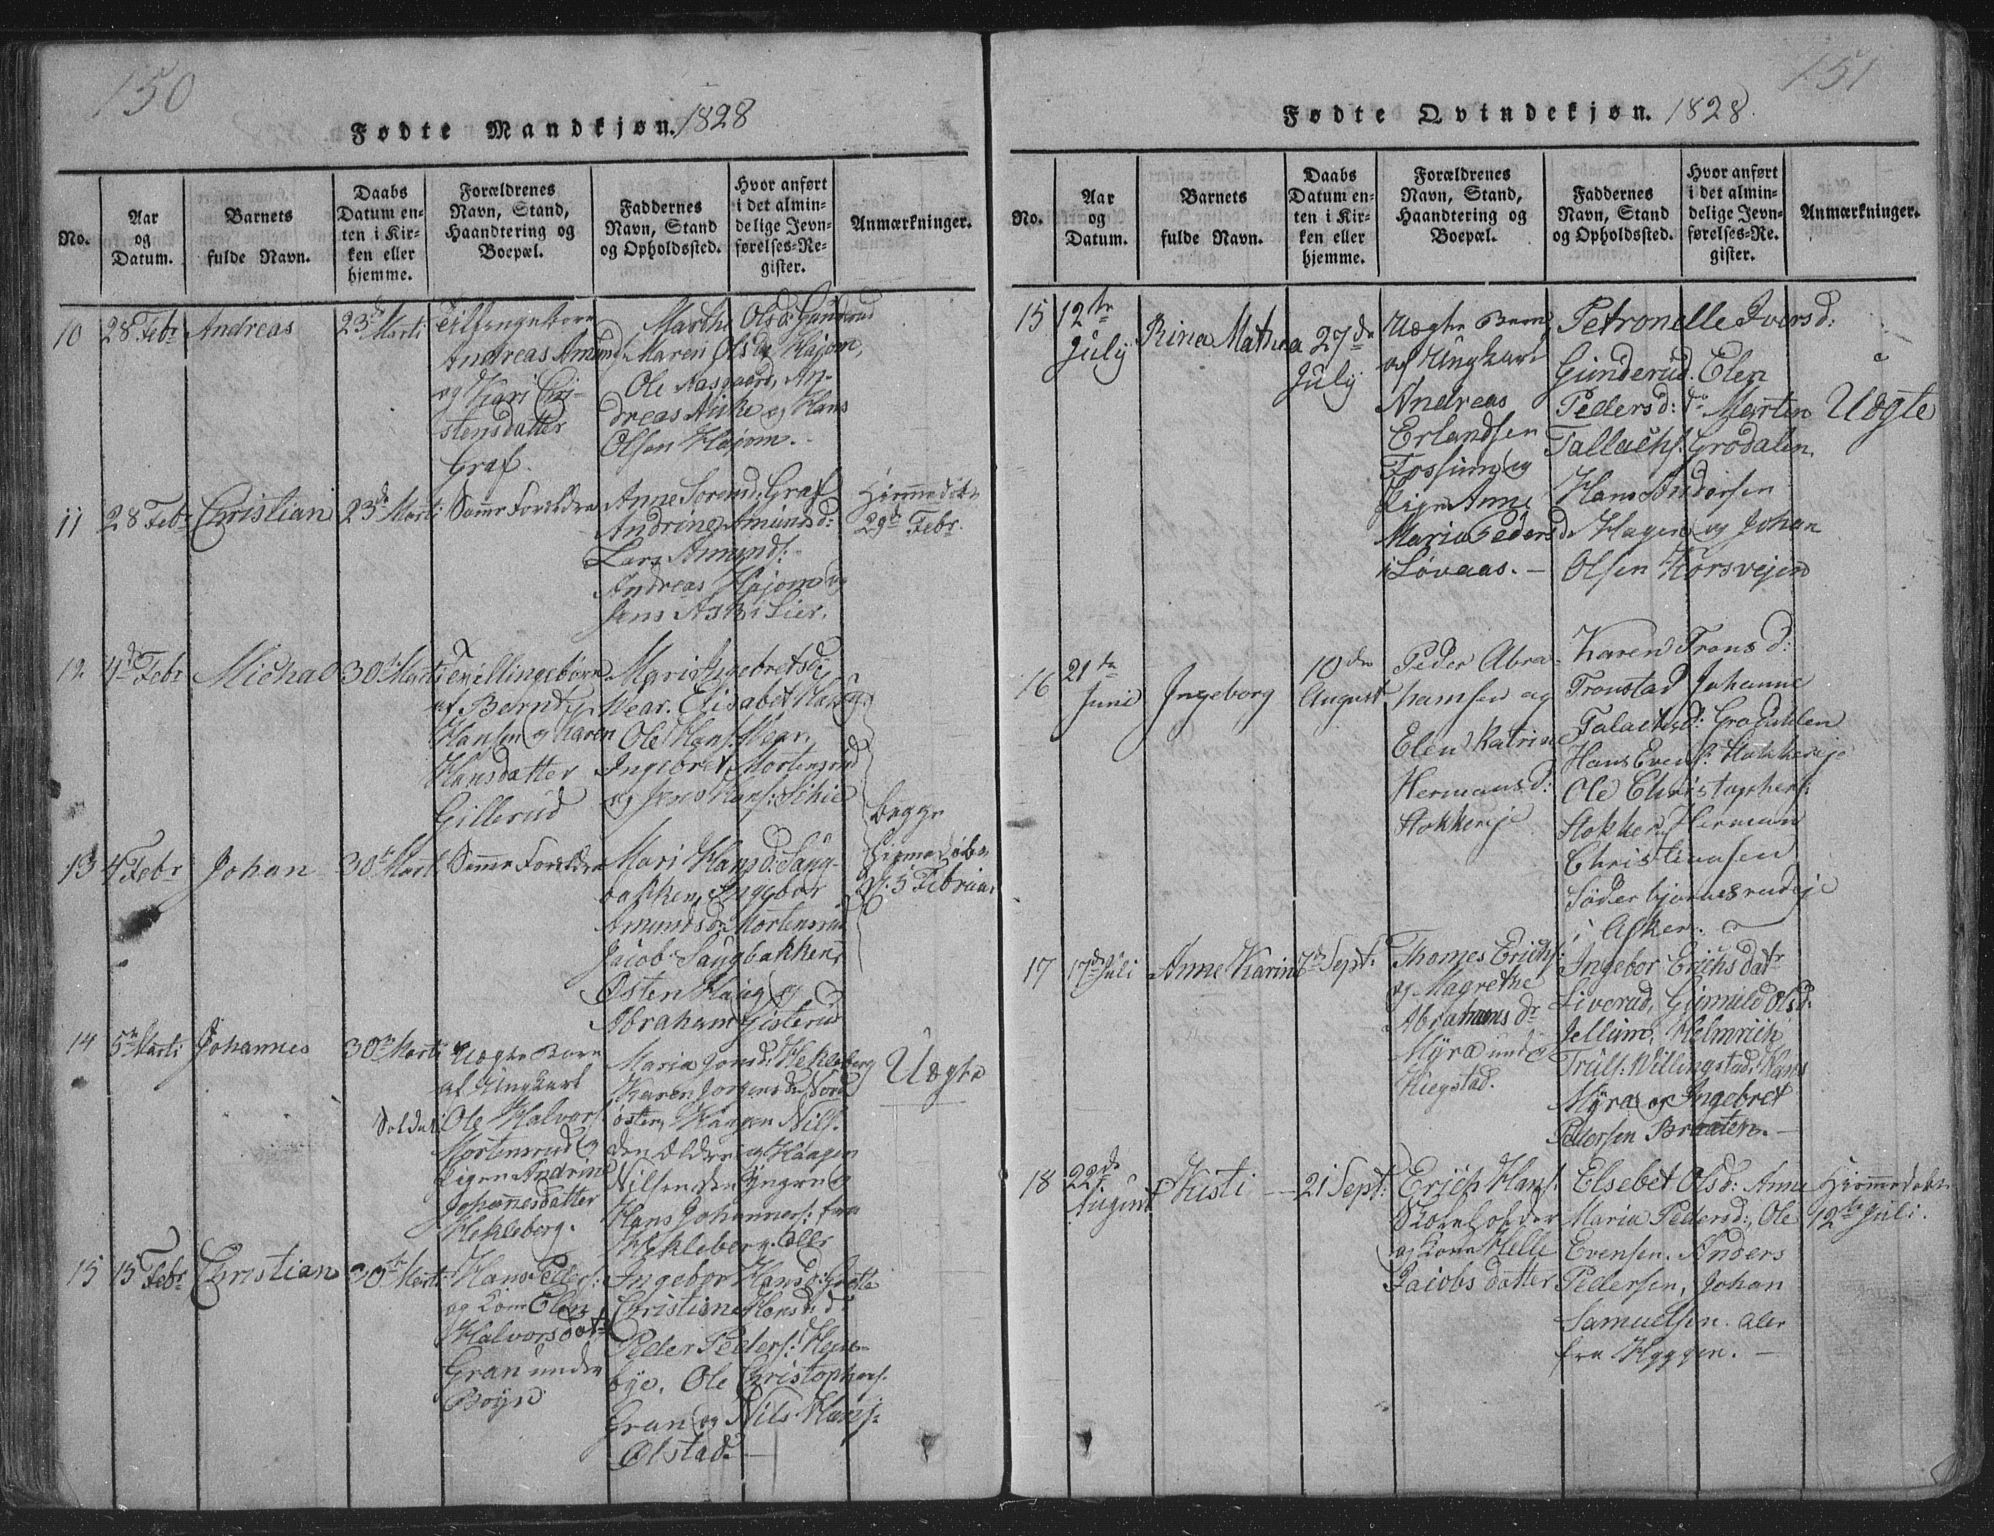 150
Fødte Mandkjøn. 1828
No.
Aar og Datum.
Barnets fulde Navn.
Daabs Datum enten i Kirken eller hjemme.
Forældrenes Navn, Stand, Haandtering og Boepæl.
Faddernes Navn, Stand og Opholdssted.
Hvor anført i det almindelige Jevnførelses-Register.
Anmærkninger.
10 28 Febr Andreas 23de Marti
Tvillingebørn
Andreas Amunds
og Kari Cri-
stensdatter
Graf.
Marthe Olsd: Gunderud
Maren Olsd Hajom,
Ole Aasgaard, An-
dreas Aske og Hans
Olsen Hajom.
11 28 Febr Christian 23de Marti Samme Foreldre
Anne Sorensd: Graf
Andrine Amunsd:
Lars Amunds:
Andreas Hajom og
Jens Aske i Lier.
Hjemmedøbt
29de Febr.
12 4de Febr Michal 30te Marti
Tvillingebørn
af Bernt
Hansen og Karen
Hansdatter
Gillerud
Mari Ingebretsd:
Wear. Elisabet Haug,
Ole Hans: Wear,
Ingebret Mortensrud
og Jens Hans:
begge
hjemmedøbt
d: 5 Februar
13 4 Febr Johan 30te Mart Samme Foreldre
Mari Hansd: Saug-
bakken, Ingebor
Amundsd: Mortensrud
Jacob Saugbakken,
Østen Haug og
Abraham Gisterud
14 5te Marti Johannes 30te Marti
Uægte Barn
af Ungkarl
Soldat Ole Halvors:
Mortensrud og
Pigen Andrine
Johannesdatter
Hekleberg.
Maria Jonsd: Hekleberg
Karen Jorgensd: Nord
østen, Haagen Nils:
den Eldre og Haagen
Nilsen den Yngere og
Hans Johannes: fra
Hekleberg alle
Uægte
15 15 Febr Christian 30te Marti
Hans Peders:
og Kone Elen
Halvorsdatr
Gran under
Bøyse
Ingebor Hansd:
Christiane Hansd:
Peder Peders: Heje-
bye. Ole Christophers:
Gran og Nils Hans:
Olstad.
151
Fødte Qvindekjøn. 1828.
No.
Aar og Datum.
Barnets fulde Navn.
Daabs Datum enten i Kirken eller hjemme.
Forældrenes Navn, Stand, Haandtering og Boepæl.
Faddernes Navn, Stand og Opholdssted.
Hvor anført i det almindelige Jevnførelses-Register.
Anmærkninger.
15 12te July Rina Mathea 27de July
Uægte Barn
af Ungkarl
Andreas
Erlandsen
Fossum og
Pige Anne
Maria Pedersd
i Løvaas.
Petronelle Iversd:
Gunderud. Elen
Pedersd: do Morten
Tallachs: Grodalen.
Hans Andersen
Hagen og Johan
Olsen Korsvejen
Uægte
16 21te Juni Ingeborg 10de August
Peder Abra-
hamsen og
Elen Katrine
Hermansd:
Stokkerje
Karen Tronsd:
Tronstad Johanne
Talachsd: Grodahlen
Hans Evens: Stokkerije
Ole Christophers:
Stokker, Herman
Christiansen
Søderbjornesrudeje
i Asker.
17 17de Juli Anne Karine 7de Sept:
Thomes Erichs:
og Magrethe
Abrahams dr
Myra under
Kiegstad.
Ingebor Erichs datr
Liverud, Gunnild Olsd:
Jellum, Helmrich
Truls: Willingstad, Hans
Myra og Ingebret
Pedersen Braaten.
18 22de August Kusti 21 Sept:
Erich Hans:
og Kone Helle
Jacobs datter
Elsebet Olsd: Anne
Maria Pedersd:, Ole
Evensen. Anders
Pedersen, Johan
Samuelsen. aler
fra Hyggen.
Hjemmedøbt
12te Juli.